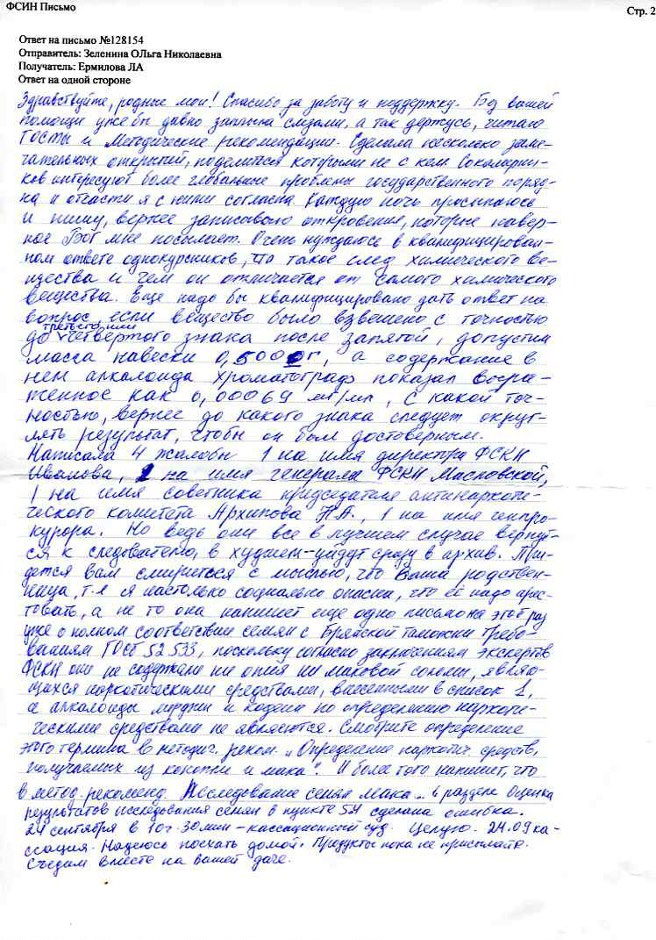 ФСИН Письмо
Стр. 2
Ответ на письмо №128154
Отправитель: Зеленина ОЛьга Николаевна
Получатель: Ермилова ЛА
Ответ на одной стороне
Здравствуйте, родные мои! Спасибо за заботу и поддержку. Без вашей
помощи уже бы давно залилась слезами, а так держусь, читаю
ГОСТы и Методические рекомендации. Сделала несколько заме-
чательных открытий, поделиться которыми не с кем. Сокамерни-
ков интересуют более глобальные проблемы государственного поряд-
ка и отчасти я с ними согласна. Каждую ночь просыпаюсь
и пишу, вернее записываю откровения, которые навер-
ное Бог мне посылает. Очень нуждаюсь в квалифицирован-
ном ответе однокурсников, что такое след химического ве-
щества и чем он отличается от самого химического
вещества. Еще надо бы квалифицировано дать ответ на
вопрос, если вещество было взвешено с точностью
до третьего, или четвертого знака после запятой, допустим
масса навески 0,5000г, а содержание в
нем алкалоида хроматограф показал выра-
женное как 0,00069 мг/мл, с какой точ-
ностью, вернее до какого знака следует округ-
лять результат, чтобы он был достоверным.
Написала 4 жалобы 1 на имя директора ФСКН
Иванова, 1 на имя генерала ФСКН Масловской,
1 на имя советника председателя антинаркоти-
ческого комитета Архипова Н.А., 1 на имя генпро-
курора. Но ведь они все в лучшем случае вернут-
ся к следователю, в худшем-уйдут сразу в архив. При-
дется вам смириться с мыслью, что Ваша родствен-
ница, т.е я настолько социально опасна, что ее надо арес-
товать, а не то она напишет еще одно письмо на этот раз
уже о полном соответствии семян с Брянской таможни требо-
ваниям ГОСТ 52533, поскольку согласно заключениям экспертов
ФСКН они не содержали ни опия ни маковой соломы, являю-
щихся наркотическими средствами, внесенными в список 1,
а алкалоиды морфин и кодеин по определению наркоти-
ческими средствами не являются. Смотрите определение
этого термина в методич. реком. „Определение наркотич. средств,
получаемых из конопли и мака". И более того напишет, что
в метод. рекоменд. Исследование семян мака.. в разделе Оценка
результатов исследования семян в пункте 5.4 сделана ошибка.
24 сентября в 10ч.30мин - кассационный суд. Целую. 24.09 ка-
ссация. Надеюсь поехать домой. Продукты пока не присылайте.
Съедим вместе на вашей даче.